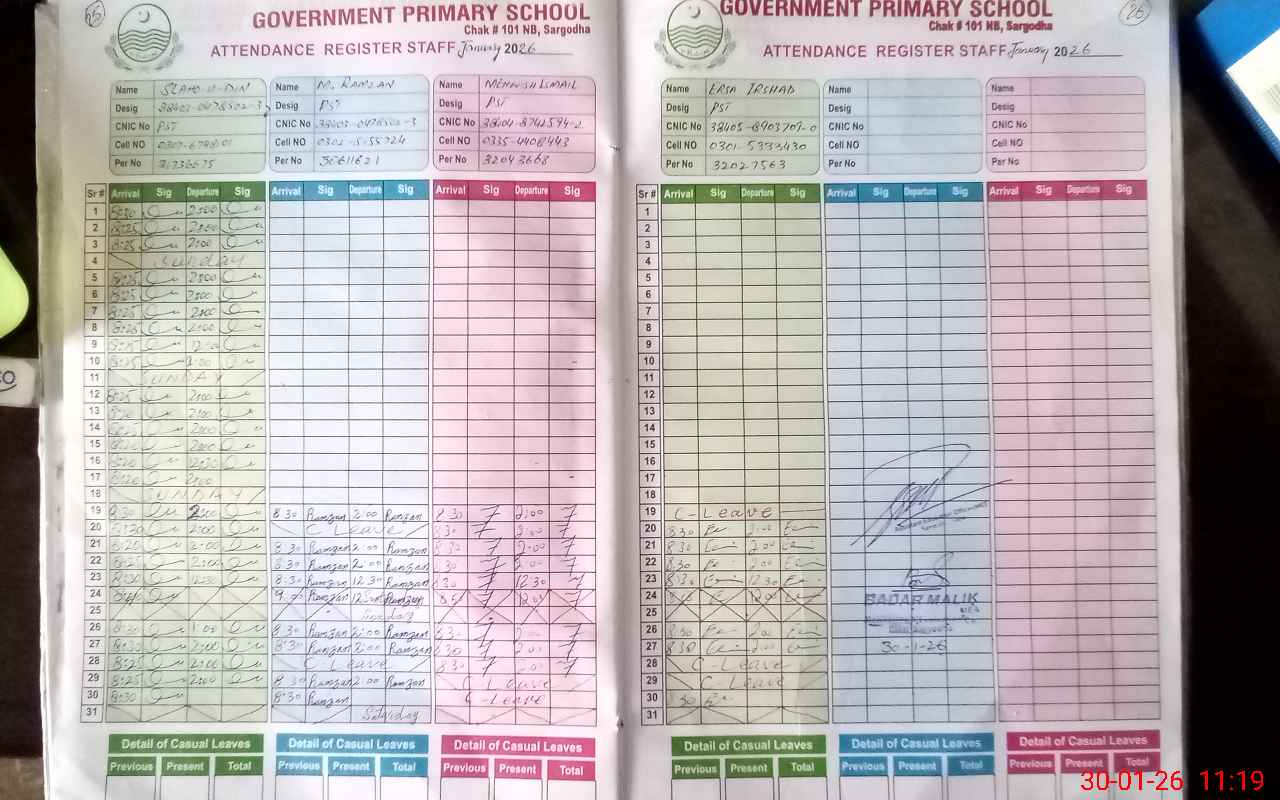 GOVERNMENT PRIMARY SCHOOL
Chak # 101 NB, Sargodha
ATTENDANCE REGISTER STAFF January 2026
Name SLAHO-U-DIN
Desig 38403-0478502-3
CNIC No PST
Cell NO
Per No 31736675
Name M. RAMZAN
Desig PST
CNIC No 38403-0478502-3
Cell NO 0302-
Per No 30611621
Name MEHWISH ISMAIL
Desig PST
CNIC No 38404-8742594-2
Cell NO 0335-4408443
Per No 32043668
Sr # Arrival Sig Departure Sig Arrival Sig Departure Sig Arrival Sig Departure Sig
1 8:30 2:00
2 8:25 2:00
3 8:25 2:00
4 Sunday
5 8:25 2:00
6 8:25 2:00
7 8:25 2:00
8 8:25 2:00
9 8:25
10 8:25
11 SUNDAY
12 8:25 2:00
13 8:20 2:00
14 8:25 2:00
15 8:20 2:00
16 8:20
17 8:20 2:00
18 SUNDAY
19 8:30 2:00 8:30 Ramzan 2:00 Ramzan 8:30 2:00
20 8:20 2:00 C Leave 8:30 2:00
21 8:20 2:00 8:30 Ramzan 2:00 Ramzan 8:30 2:00
22 8:25 2:00 8:30 Ramzan 2:00 Ramzan 8:30 2:00
23 12:30 8:30 Ramzan 12:30 Ramzan 8:30 12:30
24 9:00 Ramzan Ramzan 12:00
25 Sunday
26 8:30 1:00 8:30 Ramzan 2:00 Ramzan 8:30 2:00
27 8:30 2:00 8:30 Ramzan 2:00 Ramzan 8:30 2:00
28 8:25 2:00 C-Leave 8:30 2:00
29 8:25 2:00 8:30 Ramzan 2:00 Ramzan C Leave
30 8:30 8:30 Ramzan C-Leave
31 Saturday
Detail of Casual Leaves Detail of Casual Leaves Detail of Casual Leaves
Previous Present Total Previous Present Total Previous Present Total
26
GOVERNMENT PRIMARY SCHOOL
Chak # 101 NB, Sargodha
ATTENDANCE REGISTER STAFF January 2026
Name ERSA IRSHAD
Desig PST
CNIC No 38405-8903709-0
Cell NO 0301-5333430
Per No 32027563
Name
Desig
CNIC No
Cell NO
Per No
Name
Desig
CNIC No
Cell NO
Per No
Sr # Arrival Sig Departure Sig Arrival Sig Departure Sig Arrival Sig Departure Sig
1
2
3
4
5
6
7
8
9
10
11
12
13
14
15
16
17
18
19 C-Leave
20 8:30 2:00
21 8:30 2:00
22 8:30 2:00
23 8:30 12:30
24 12:00
25
26 8:30 2:00
27 8:30 2:00
28 C-Leave
29 C-Leave
30 30
31
BADAR MALIK
MEA
30-1-26
Detail of Casual Leaves Detail of Casual Leaves Detail of Casual Leaves
Previous Present Total Previous Present Total Previous Present Total
30-01-26 11:19